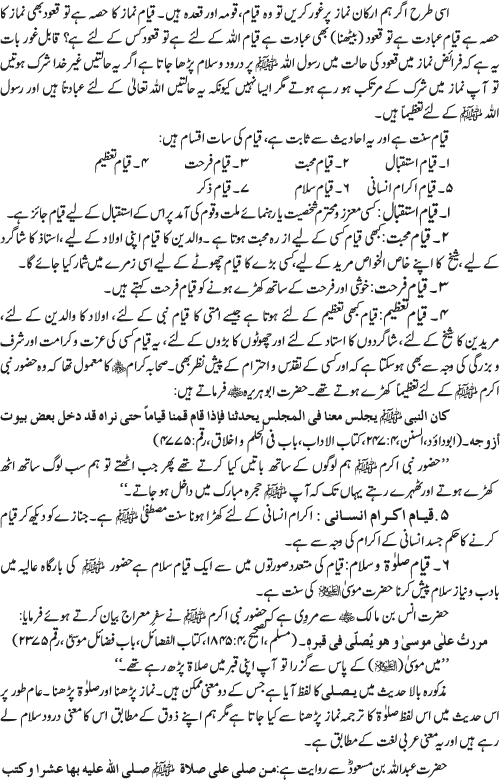 اسی طرح اگر ہم ارکان نماز پر غور کریں تو وہ قیام، قومہ اور قعدہ ہیں۔ قیام نماز کا حصہ ہے تو قعود بھی نماز کا
حصہ ہے قیام عبادت ہے تو قعود (بیٹھنا) بھی عبادت ہے قیام اللہ کے لئے ہے تو قعود کس کے لئے ہے؟ قابل غور بات
یہ ہے کہ فرائض نماز میں قعود کی حالت میں رسول اللہ ﷺ پر درود و سلام پڑھا جاتا ہے اگر یہ حالتیں غیر خدا شرک ہوتیں
تو آپ نماز میں شرک کے مرتکب ہو رہے ہوتے مگر ایسا نہیں کیونکہ یہ حالتیں اللہ تعالیٰ کے لئے عبادتاً ہیں اور رسول
اللہ ﷺ کے لئے تعظیماً ہیں۔
قیام سنت ہے اور یہ احادیث سے ثابت ہے، قیام کی سات اقسام ہیں:
۱۔ قیام استقبال ۲۔ قیام محبت ۳۔ قیام فرحت ۴۔ قیام تعظیم
۵۔ قیام اکرام انسانی ۶۔ قیام سلام ۷۔ قیام ذکر
۱۔ قیام استقبال: کسی معزز و محترم شخصیت یا رہنمائے ملت و قوم کی آمد پر اس کے استقبال کے لیے قیام جائز ہے۔
۲۔ قیام محبت: کبھی قیام کسی کے لیے از رہ محبت ہوتا ہے۔ والدین کا قیام اپنی اولاد کے لیے، استاذ کا شاگرد
کے لیے، شیخ کا اپنے خاص الخواص مرید کے لیے، کسی بڑے کا قیام چھوٹے کے لیے اسی زمرے میں شمار کیا جائے گا۔
۳۔ قیام فرحت: خوشی اور فرحت کے ساتھ کھڑے ہونے کو قیام فرحت کہتے ہیں۔
۴۔ قیام تعظیم: قیام کبھی تعظیم کے لئے ہوتا ہے جیسے امتی کا قیام نبی کے لئے، اولاد کا والدین کے لئے،
مریدین کا شیخ کے لئے، شاگردوں کا استاد کے لئے اور چھوٹوں کا بڑوں کے لئے، یہ قیام کسی کی عزت و کرامت اور شرف
و بزرگی کی وجہ سے بھی ہوسکتا ہے اور کسی کے تقدس و احترام کے پیش نظر بھی۔ صحابہ کرام ؓ کا معمول تھا کہ وہ حضور نبی
اکرم ﷺ کے لئے تعظیماً کھڑے ہوتے تھے۔ حضرت ابوہریرہ ؓ فرماتے ہیں:
كان النبي ﷺ يجلس معنا فى المجلس يحدثنا فإذا قام قمنا قياماً حتى نراه قد دخل بعض بيوت
أزوجه۔ (ابوداؤد، السنن، ۴:۲۴۷، کتاب الاداب، باب فی الحلم و اخلاق، رقم: ۴۷۷۵)
’’حضور نبی اکرم ﷺ ہم لوگوں کے ساتھ باتیں کیا کرتے تھے پھر جب اٹھتے تو ہم سب لوگ ساتھ اٹھ
کھڑے ہوتے اور ٹھہرے رہتے یہاں تک کہ آپ ﷺ حجرہ مبارک میں داخل ہو جاتے۔‘‘
۵۔ قیام اکرام انسانی: اکرام انسانی کے لئے کھڑا ہونا سنت مصطفیٰ ﷺ ہے۔ جنازے کو دیکھ کر قیام
کرنے کا حکم جسد انسانی کے اکرام کی وجہ سے ہے۔
۶۔ قیام صلوٰۃ و سلام: قیام کی متعدد صورتوں میں سے ایک قیام سلام ہے حضور ﷺ کی بارگاہ عالیہ میں
بادب و نیاز سلام پیش کرنا حضرت موسیٰ علیہ السلام کی سنت ہے۔
حضرت انس بن مالک ؓ سے مروی ہے کہ حضور نبی اکرم ﷺ نے سفر معراج بیان کرتے ہوئے فرمایا:
مررتُ على موسىٰ و هو يُصلّى فى قبره۔ (مسلم، الصحیح، ۴:۱۸۴۵، کتاب الفضائل، باب فضائل موسیٰ، رقم ۲۳۷۵)
’’میں موسیٰ (علیہ السلام) کے پاس سے گزرا تو آپ اپنی قبر میں صلاۃ پڑھ رہے تھے۔‘‘
مذکورہ بالا حدیث میں یصلی کا لفظ آیا ہے جس کے دو معنی ممکن ہیں۔ نماز پڑھنا اور صلوٰۃ پڑھنا۔ عام طور پر
اس حدیث میں اس لفظ صلوٰۃ کا ترجمہ نماز پڑھنا سے کیا جاتا ہے مگر ہم اپنے ذوق کے مطابق اس کا معنی درود سلام لے
رہے ہیں اور یہ معنی عربی لغت کے مطابق ہے۔
حضرت عبداللہ بن مسعودؓ سے روایت ہے: من صلى على صلاة ﷺ صلى الله عليه بها عشرا و كتب